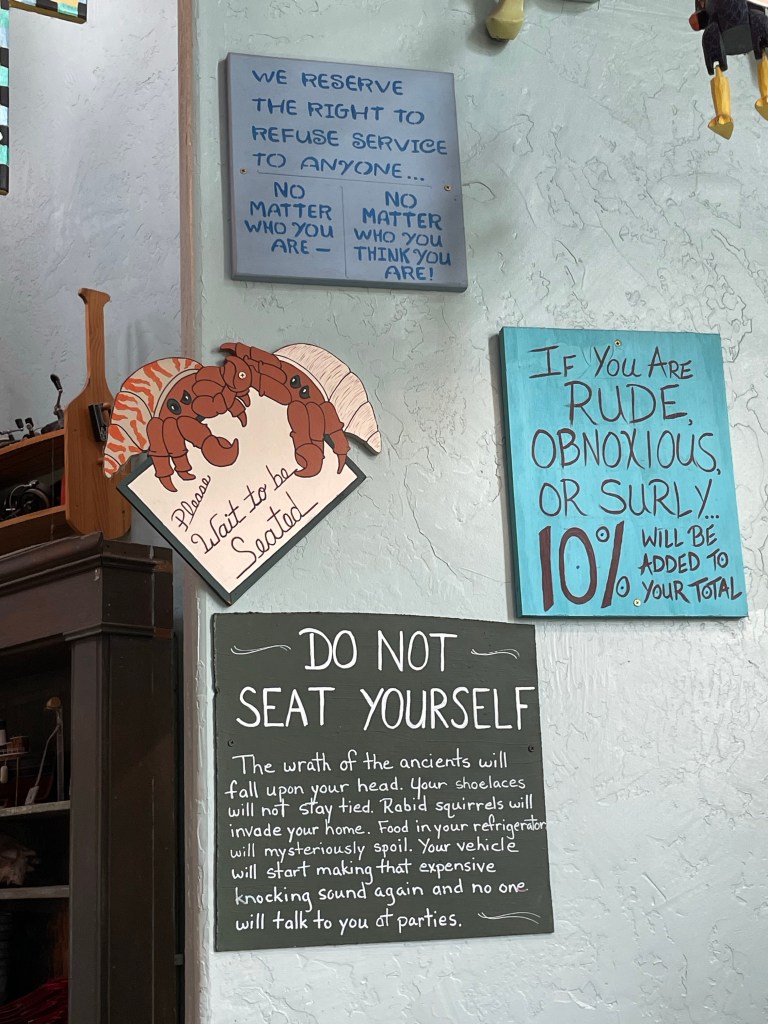 WE RESERVE
THE RIGHT TO
REFUSE SERVICE
TO ANYONE...
NO
MATTER
WHO YOU
ARE —
NO
MATTER
WHO YOU
THINK YOU
ARE!
IF YOU ARE
RUDE,
OBNOXIOUS,
OR SURLY...
10%
WILL BE
ADDED TO
YOUR TOTAL
Please
Wait to be
Seated
DO NOT
SEAT YOURSELF
The wrath of the ancients will
fall upon your head. Your shoelaces
will not stay tied. Rabid squirrels will
invade your home. Food in your refrigerator
will mysteriously spoil. Your vehicle
will start making that expensive
knocking sound again and no one
will talk to you at parties.